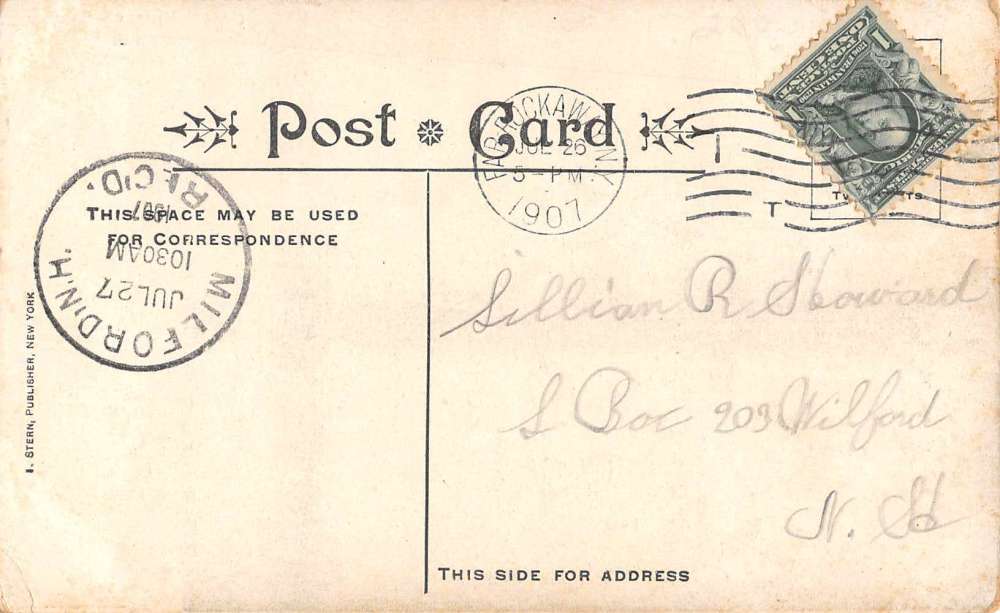 Post Card
FAR ROCKAWAY N.Y.
JUL 26
5-PM
1907
ONE
1
1
T
THIS SPACE MAY BE USED
FOR CORRESPONDENCE
MILFORD N.H.
JUL 27
1030AM
1907
REC'D.
I. STERN, PUBLISHER, NEW YORK
Lillian R Howard
L Box 203 Wilford
N. H
THIS SIDE FOR ADDRESS